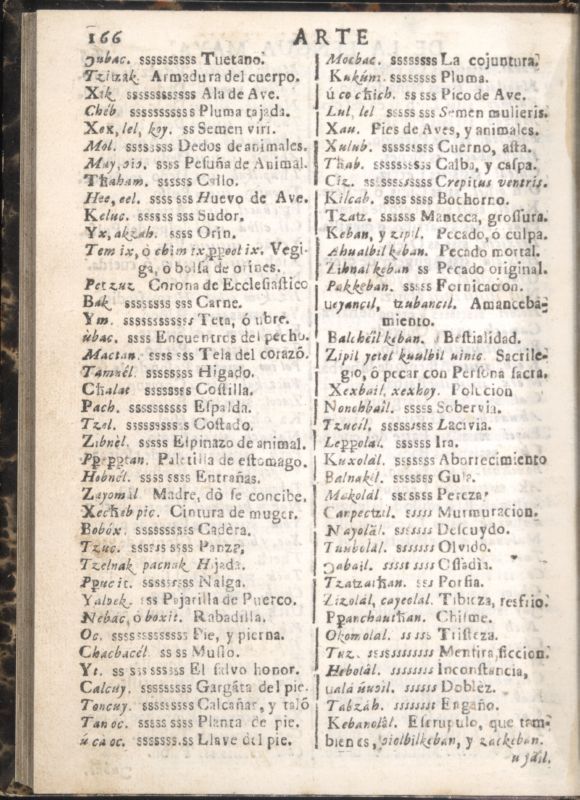 166 ARTE
Ɔubac. sssssssss Tuetano.
Tzitzak. Armadura del cuerpo.
Xik. sssssssssss Ala de Ave.
Chéb. sssssssssss Pluma tajada.
Xex, lel, koy. ss Semen viri.
Mol. ssssssss Dedos de animales.
May, Pesuña de Animal.
Tħaham. ssssss Callo.
Hee, eel. ssss sss Huevo de Ave.
Keluc. ssss ss sss Sudor.
Yx, akzah. ssss Orin.
Tem ix, ò chim ix, ppoot ix. Vegi-
ga, ò bolsa de orines.
Petzuz Corona de Ecclesiastico
Bak ssssssss sss Carne.
Ym. sssssssssss Teta, ó ubre.
ùbac. ssss Encuentros del pecho.
Mactan. ssss sss Tela del corazõ.
Tamnél. ssssssss Higado.
Cħalat ssssssss Costilla.
Pach. ssssssssss Espalda.
Tzel. ssssssssss Costado.
Zibnèl. sssss Espinazo de animal.
Ppepptan. Paletilla de estomago.
Hobnél. ssss ssss Entrañas.
Zayomil Madre, dò se concibe.
Xecħeb pic. Cintura de muger.
Bobóx. ssssssssss Cadèra.
Tzuc. ssssss ssss Panza,
Tzelnak pacnak Hijada.
Ppucit. sssssssss Nalga.
Yalbek. sss Pajarilla de Puerco.
Nebac, ò boxit. Rabadilla.
Oc. ssssssssssss Pie, y pierna.
Chacbacél ss ss Muslo.
Yt. ss sss ssssss El salvo honor.
Calcuy. sssssssss Gargãta del pie.
Toncuy. sssssssss Calcañar, y talõ
Tan oc. sssss ssss Planta de pie.
ú cà oc. sssssss.ss Llave del pie.
Mocbac. ssssssss La cojuntura.
Kukúm. ssssssss Pluma.
ú co cħich. ss sss Pico de Ave.
Lul, lel sssss sss Semen mulieris.
Xau. Pies de Aves, y animales.
Xulub. sssssssss Cuerno, asta.
Tħab. ssssssssss Calba, y caspa.
Ciz. ss ssssssssss Crepitus ventris.
Kilcab. ssss ssss Bochorno.
Tzatz. ssssss Manteca, grossura.
Keban, y zipil. Pecado, ó culpa.
Ahualbil keban. Pecado mortal.
Zihnal keban ss Pecado original.
Pakkeban. sssss Fornicacion.
uɐyancil, tzubancil. Amanceba-
miento.
Balchéil keban. Bestialidad.
Zipil yetel kuulbil uinic. Sacrile-
gio, ó pecar con Persona sacra.
Xexbail, xexhoy. Polucion
Nonohbail. sssss Sobervia.
Tzucil, ssssssss Lacivia.
Leppolal. ssssss Ira.
Kuxolàl. sssssss Aborrecimiento
Balnakil. sssssss Gula.
Makolàl sssssss Pereza
Carpectzil. ssss Murmuracion.
Nayolàl. sssssss Descuydo.
Tuubolàl. sssssss Olvido.
Ɔabail. sssss ssss Ossadia.
Tzatzatħan. sss Porfia.
Zizolál, cayeolal. Tibieza, resfrio.
Ppanchautħan. Chisme.
Okomolal. ss sss Tristeza.
Tuz. sssssssssss Mentira, ficcion.
Hebolàl. ssssssss Inconstancia,
ualá ùuòil. ssssss Doblez.
Tabzàh. ssssssss Engaño.
Kebanolàl. Escrupulo, que tam-
bien es, ɔiolbilkeban, y zackeban.
u jail.